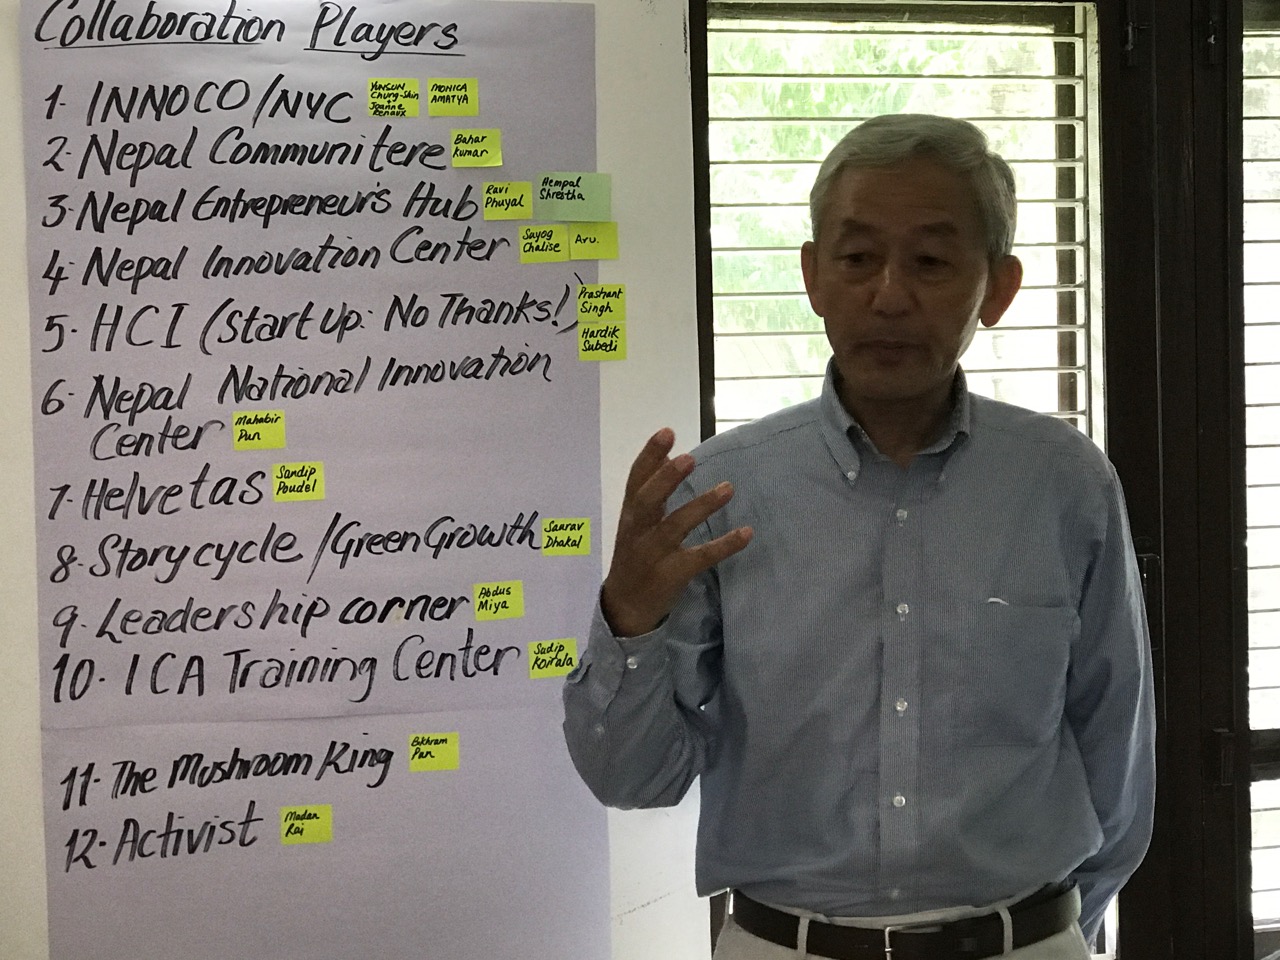 Collaboration Players
1- INNOCO/NYC
YUNSUN
Chung-Shin
+
Joanne
Renaux
MONICA
AMATYA
2- Nepal Communitere
Bahar
Kumar
3- Nepal Entrepreneur's Hub
Ravi
Phuyal
Hempal
Shrestha
4- Nepal Innovation Center
Sayog
Chalise
Aru.
5- HCI (Start Up: No Thanks!)
Prashant
Singh
Hardik
Subedi
6- Nepal National Innovation
Center
Mahabir
Pun
7- Helvetas
Sandip
Poudel
8- Storycycle /GreenGrowth
Saurav
Dhakal
9- Leadership corner
Abdus
Miya
10- ICA Training Center
Sadip
Koirala
11- The Mushroom King
Bikhram
Pan
12- Activist
Madan
Rai